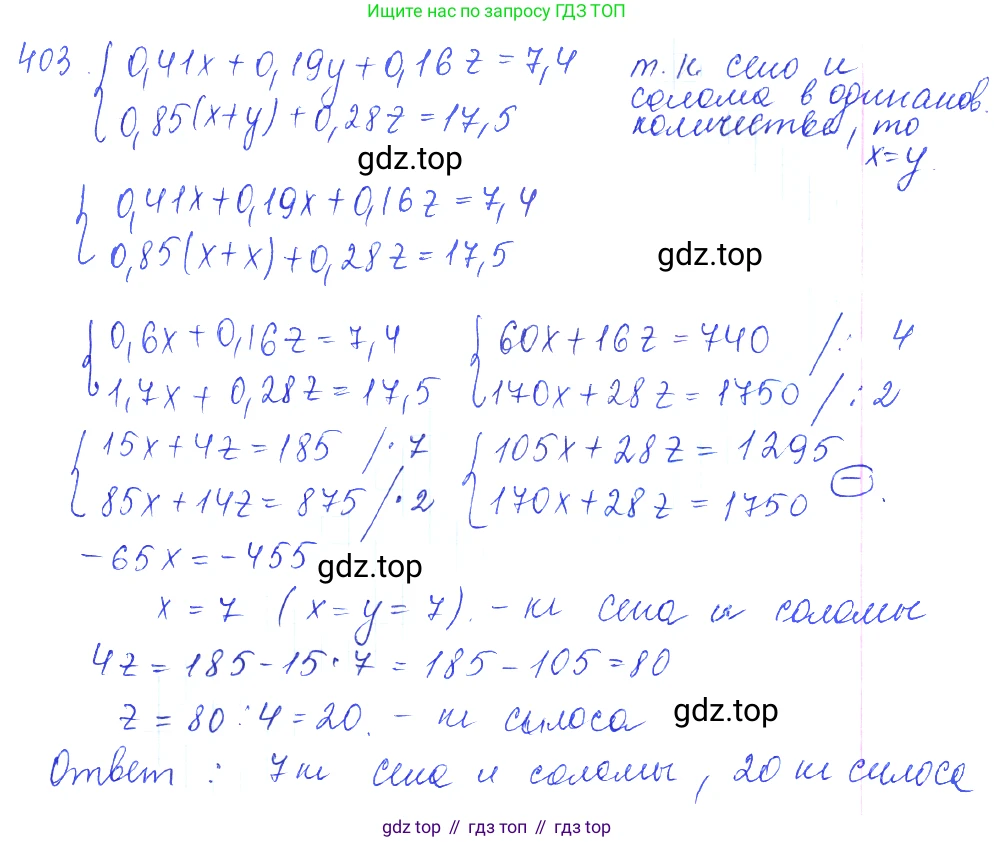 Ищите нас по запросу ГДЗ ТОП
403. { 0,41x + 0,19y + 0,16z = 7,4
0,85(x+y) + 0,28z = 17,5
т.к сено и
солома в одинаков.
количестве, то
x=y.
gdz.top
{ 0,41x+0,19x+0,16z=7,4
0,85(x+x)+0,28z=17,5
gdz.top
{ 0,6x+0,16z=7,4
1,7x + 0,28z=17,5
{ 60x+16z=740 /: 4
170x+28z=1750 /: 2
{ 15x+4z=185 /·7
85x+14z=875 /·2
{ 105x+28z=1295
170x+28z=1750 (−).
-65x=-455
gdz.top
x = 7 (x=y=7). - кг сена и соломы
4z = 185-15·7 = 185-105=80
z = 80:4=20. - кг силоса
gdz.top
Ответ : 7кг сена и соломы, 20 кг силоса
gdz top // гдз топ // gdz top